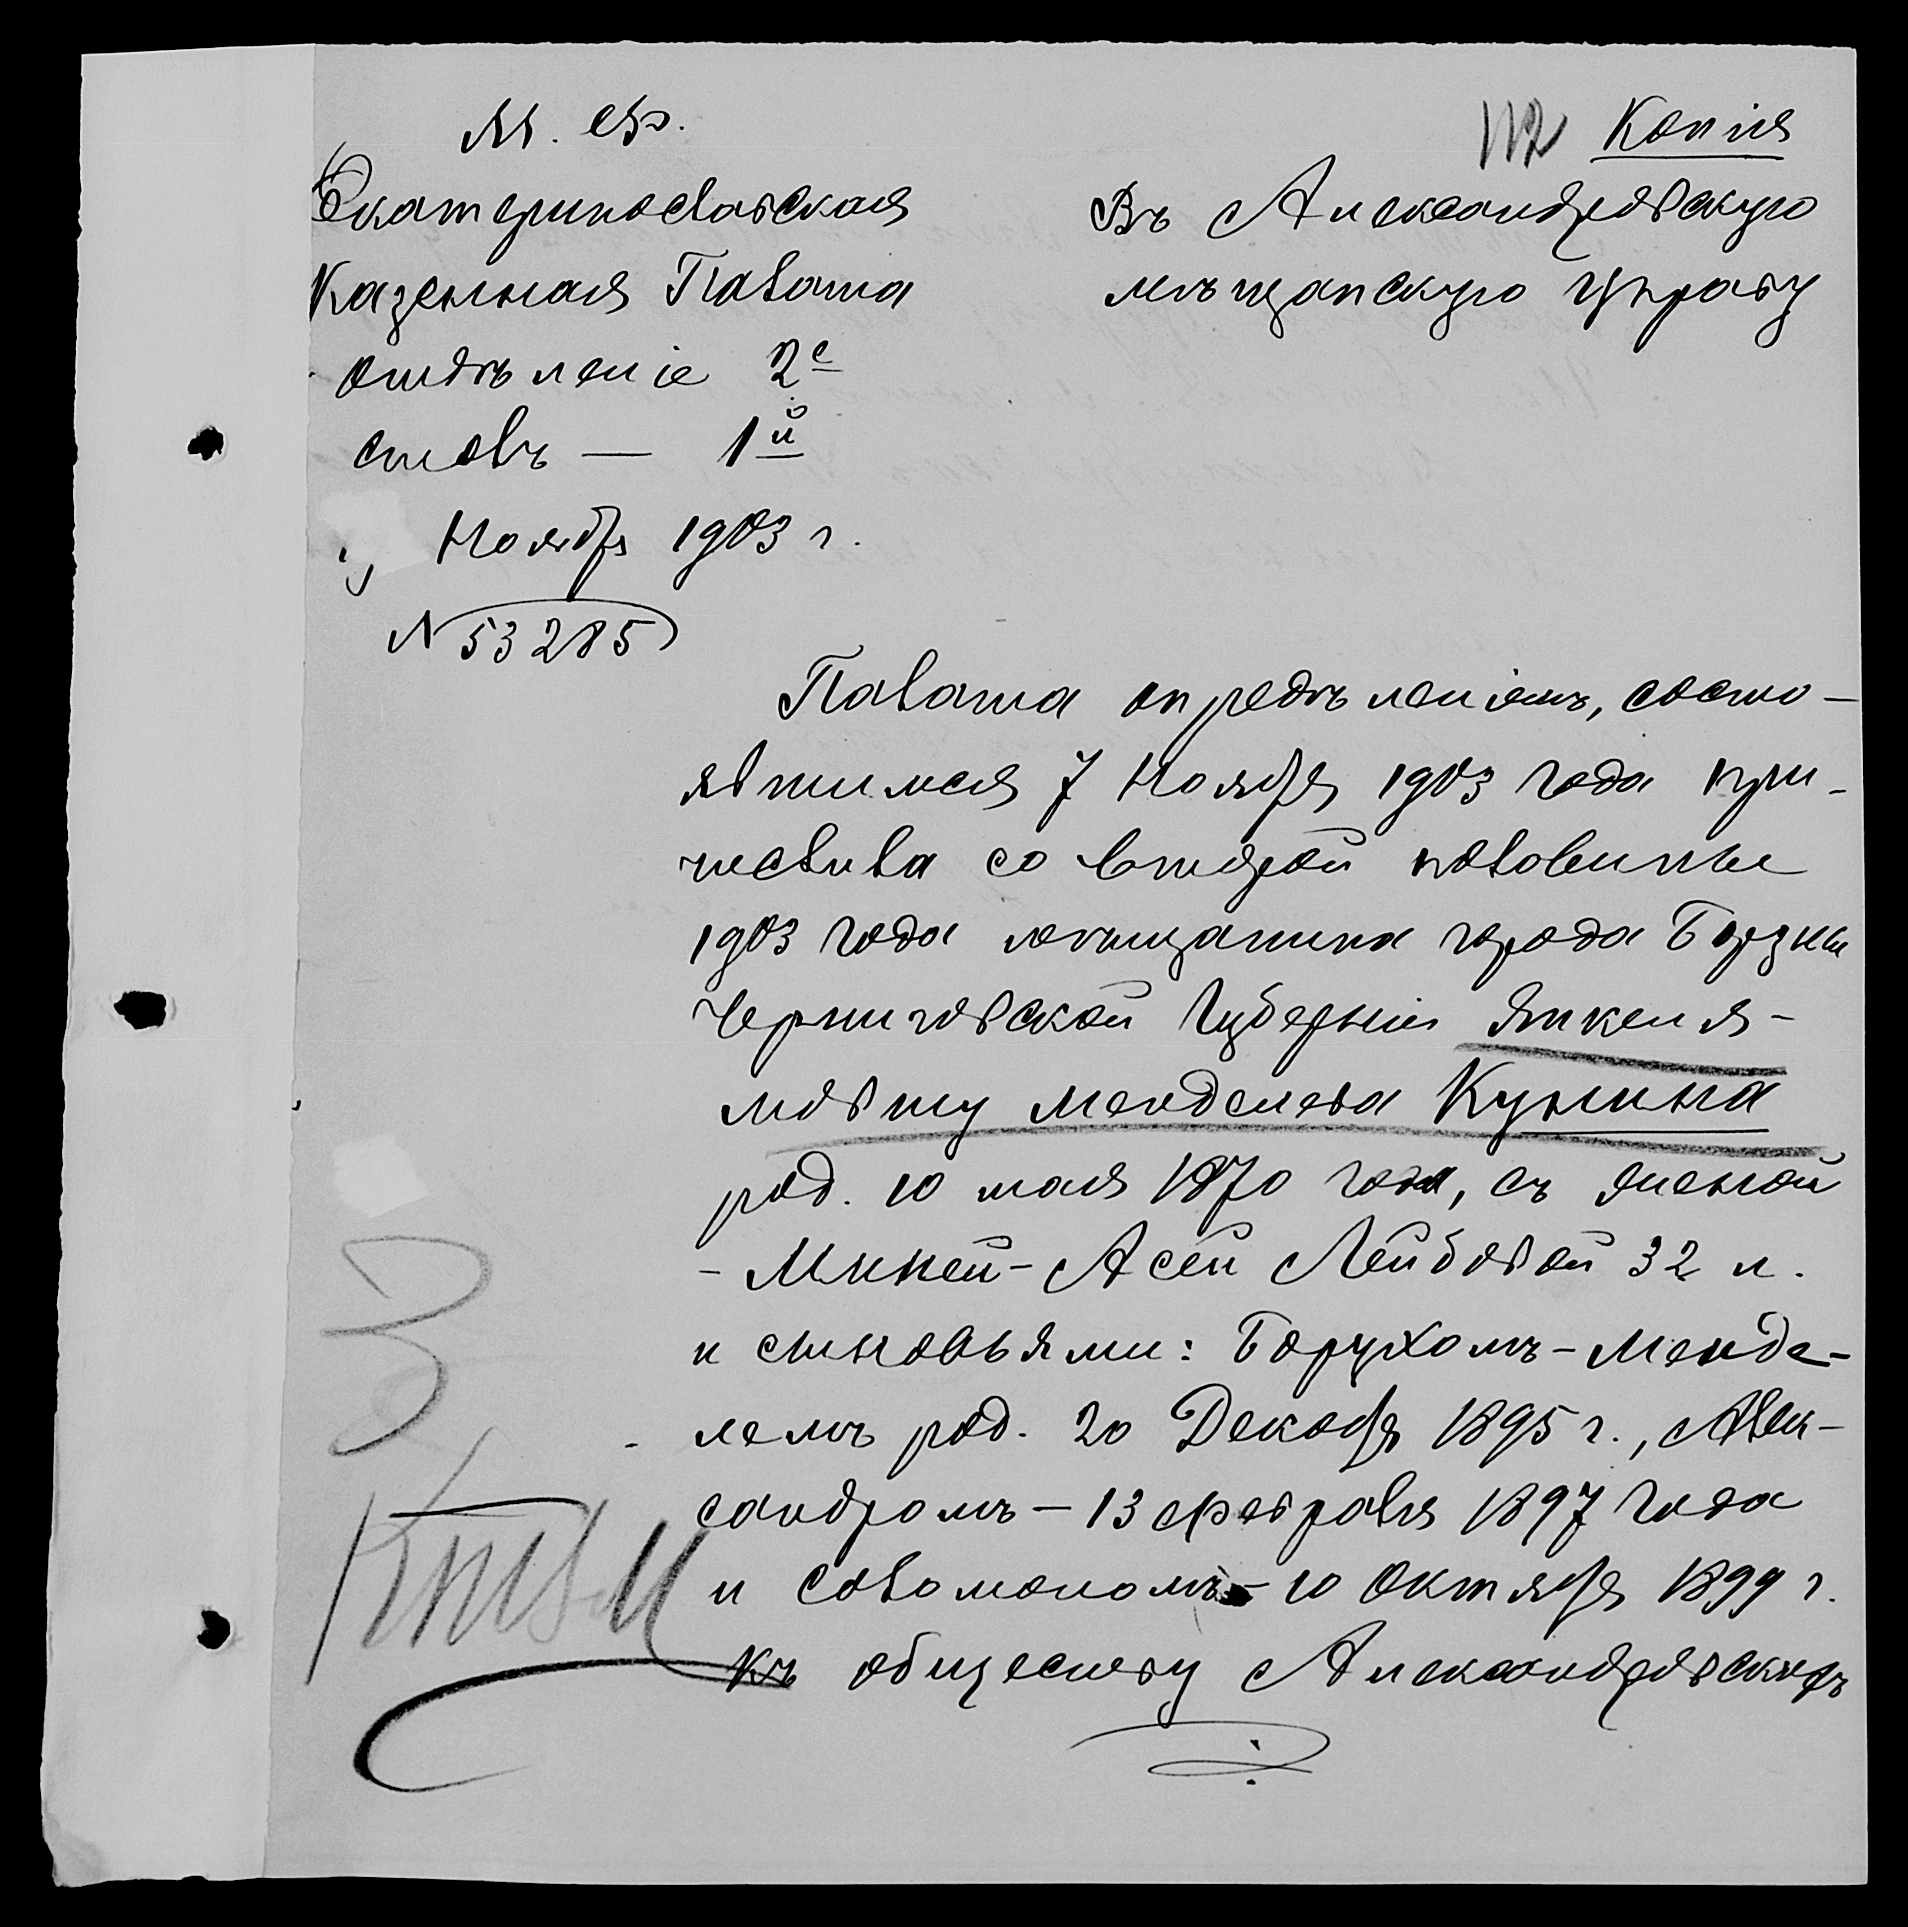 М. Ф.
112 Копія
Екатеринославская
Казенная Палата
отдѣленіе 2е
столъ — 1й
Ноября 1903 г.
N 53285
Въ Александровскую
мѣщанскую управу
Палата опредѣленіемъ, состо-
явшимся 7 Ноября 1903 года при-
числила со второй половины
1903 года мѣщанина города Борзны
Черниговской Губерніи Янкеля-
Мовшу Менделева Кунина
род. 10 мая 1870 года, съ женой
- Миней-Асей Лейбовой 32 л.
и сыновьями: Борухомъ-Менде-
лемъ род. 20 Декабря 1895 г., Алек-
сандромъ - 13 февраля 1897 года
и Соломономъ - 10 Октября 1899 г.
къ обществу Александровскихъ
3